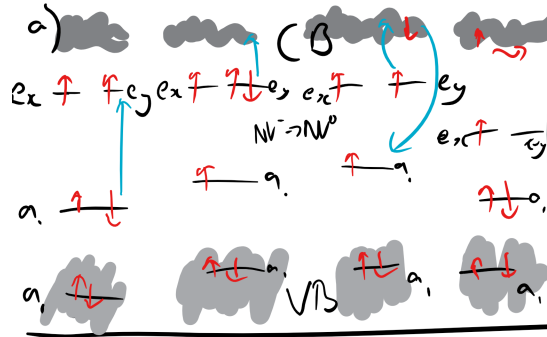 a) CB
ex ey ex ey ex ey
NV⁻→NV⁰
ex ey
a₁ a₁ a₁ a₁
a₁ a₁ VB a₁ a₁